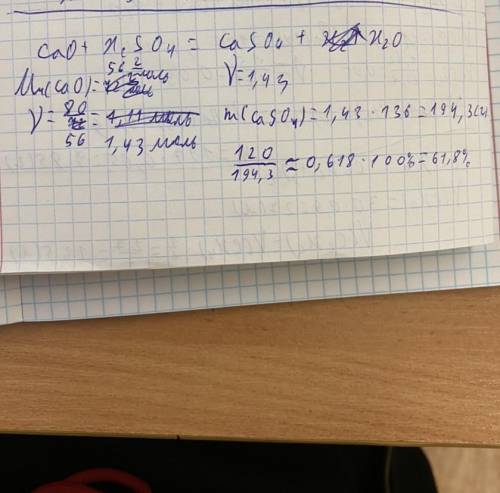 CaO + H₂SO₄ = CaSO₄ + H₂O
Mm(CaO) = 56 г/моль
ν = 80/56 = 1,43 моль
ν = 1,43
m(CaSO₄) = 1,43 · 136 = 194,3(г)
120/194,3 ≈ 0,618 · 100% = 61,8%